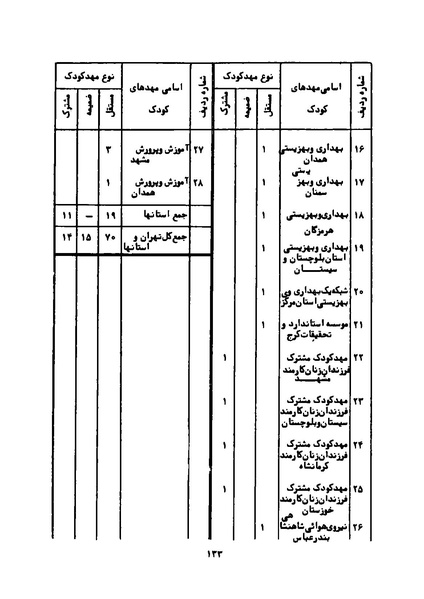 شماره ردیف
اسامی مهدهای
کودک
نوع مهدکودک
مستقل
ضمیمه
مشترک
۱۶ بهداری وبهزیستی ۱
همدان
۱۷ بهداری وبهز ۱
یستی
سمنان
۱۸ بهداری وبهزیستی ۱
هرمزگان
۱۹ بهداری وبهزیستی ۱
استان بلوچستان و
سیستان
۲۰ شبکه یک بهداری وی ۱
بهزیستی استان مرکزی
۲۱ موسسه استاندارد و ۱
تحقیقات کرج
۲۲ مهدکودک مشترک ۱
فرزندان زنان کارمند
مشهد
۲۳ مهدکودک مشترک ۱
فرزندان زنان کارمند
سیستان وبلوچستان
۲۴ مهدکودک مشترک ۱
فرزندان زنان کارمند
کرمانشاه
۲۵ مهدکودک مشترک ۱
فرزندان زنان کارمند
خوزستان
۲۶ نیروی هوائی شاهنشا ۱
هی
بندرعباس
شماره ردیف
اسامی مهدهای
کودک
نوع مهدکودک
مستقل
ضمیمه
مشترک
۲۷ آموزش وپرورش ۳
مشهد
۲۸ آموزش وپرورش ۱
همدان
جمع استانها ۱۹ – ۱۱
جمع کل تهران و ۷۰ ۱۵ ۱۴
استانها
۱۳۳